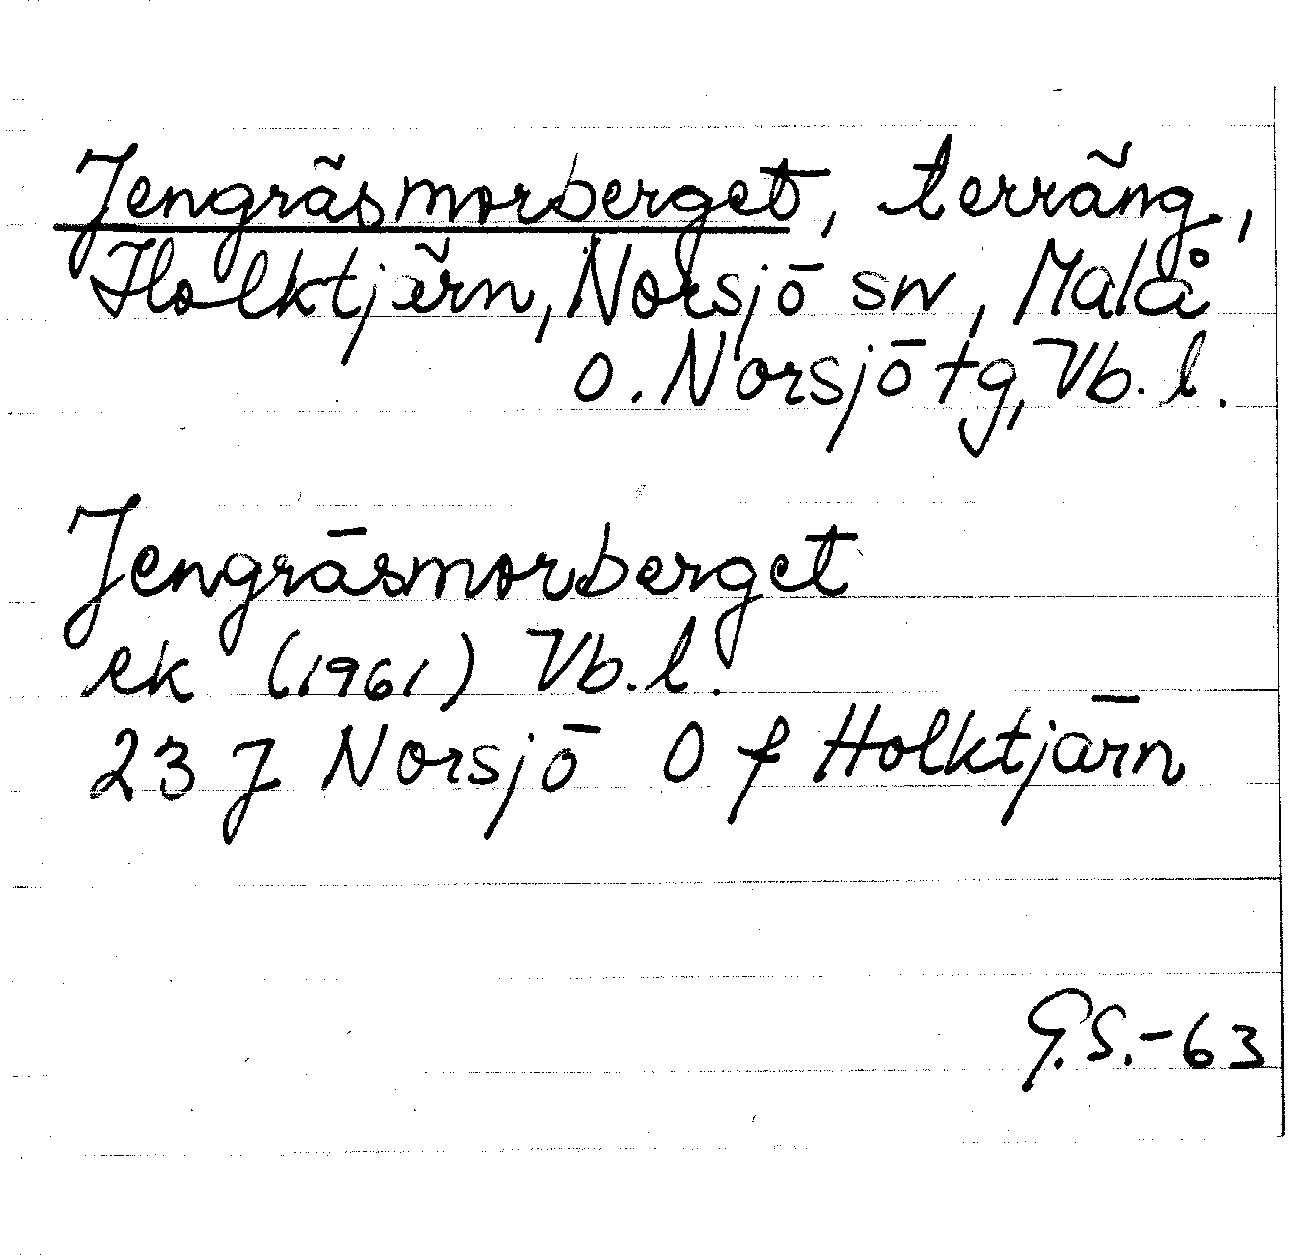 Jengräsmorberget, terräng,
Holktjärn, Norsjö sn, Malå
o. Norsjö tg, Vb. l.
Jengräsmorberget
ek (1961) Vb. l.
23 J Norsjö O f Holktjärn
G.S.-63